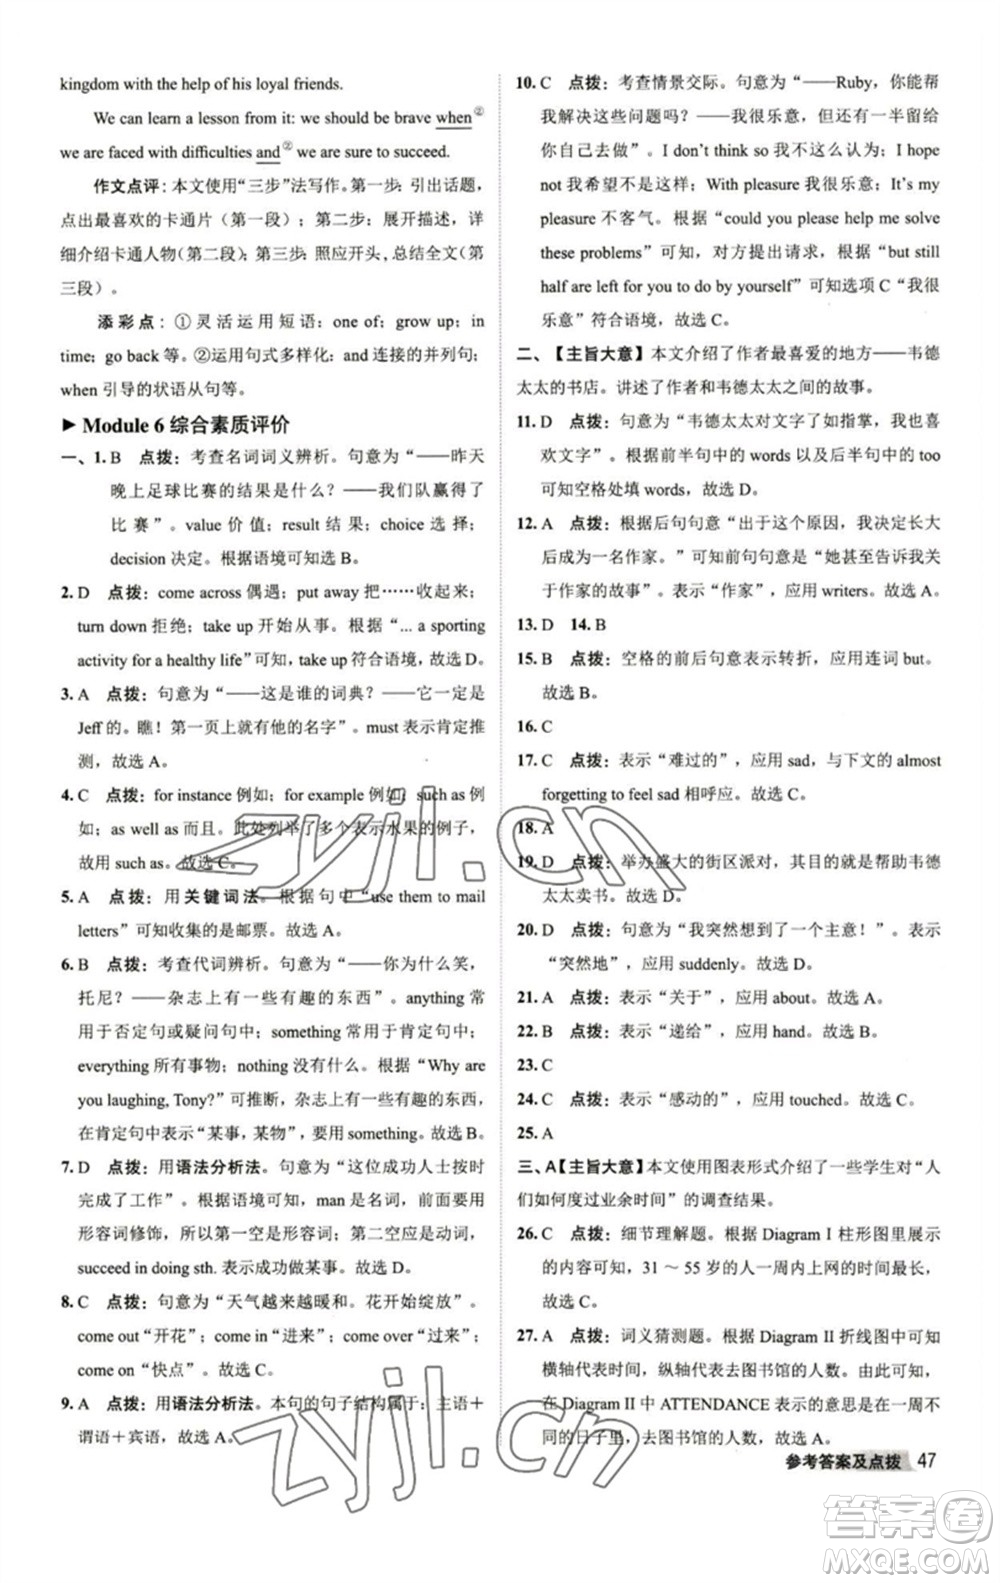 kingdom with the help of his loyal friends.
We can learn a lesson from it: we should be brave when②
we are faced with difficulties and② we are sure to succeed.
作文点评:本文使用“三步”法写作。第一步:引出话题,
点出最喜欢的卡通片(第一段);第二步:展开描述,详
细介绍卡通人物(第二段);第三步:照应开头,总结全文(第
三段)。
添彩点:①灵活运用短语:one of; grow up; in
time; go back等。②运用句式多样化:and连接的并列句;
when引导的状语从句等。
▶Module 6 综合素质评价
一、1. B 点拨:考查名词词义辨析。句意为“——昨天
晚上足球比赛的结果是什么?——我们队赢得了
比赛”。value 价值;result 结果;choice 选择;
decision 决定。根据语境可知选 B。
2. D 点拨:come across 偶遇;put away 把……收起;
turn down 拒绝;take up 开始从事。根据“... a sporting
activity for a healthy life”可知,take up 符合语境,故选 D。
3. A 点拨:句意为“——这是谁的词典?——它一定是
Jeff 的。瞧!第一页上就有他的名字”。must 表示肯定推
测,故选 A。
4. C 点拨:for instance 例如;for example 例如;such as 例
如;as well as 而且。此处列举了多个表示水果的例子,
故用 such as。故选 C。
5. A 点拨:用关键词法。根据句中“use them to mail
letters”可知收集的是邮票。故选 A。
6. B 点拨:考查代词辨析。句意为“——你为什么笑,
托尼?——杂志上有一些有趣的东西”。anything 常
用于否定句或疑问句中;something 常用于肯定句中;
everything 所有事物;nothing 没有什么。根据“Why are
you laughing, Tony?”可推断,杂志上有一些有趣的东西,
在肯定句中表示“某事,某物”,要用 something。故选 B。
7. D 点拨:用语法分析法。句意为“这位成功人士按时
完成了工作”。根据语境可知,man 是名词,前面要用
形容词修饰,所以第一空是形容词;第二空应是动词,
succeed in doing sth. 表示成功做某事。故选 D。
8. C 点拨:句意为“天气越来越暖和。花开始绽放”。
come out“开花”;come in“进来”;come over“过来”;
come on“快点”。故选 C。
9. A 点拨:用语法分析法。本句的句子结构属于:主语+
谓语+宾语,故选 A。
10. C 点拨:考查情景交际。句意为“——Ruby,你能帮
我解决这些问题吗?——我很乐意,但还有一半留给
你自己去做”。I don't think so 我不这么认为;I hope
not 我希望不是这样;With pleasure 我很乐意;It's my
pleasure 不客气。根据“could you please help me solve
these problems”可知,对方提出请求,根据“but still
half are left for you to do by yourself”可知选项 C“我很
乐意”符合语境,故选 C。
二、【主旨大意】本文介绍了作者最喜爱的地方——韦德
太太的书店。讲述了作者和韦德太太之间的故事。
11. D 点拨:句意为“韦德太太对文字了如指掌,我也喜
欢文字”。根据前半句中的 words 以及后半句中的 too
可知空格处填 words,故选 D。
12. A 点拨:根据后句句意“出于这个原因,我决定长大
后成为一名作家。”可知前句句意为“她甚至告诉我关
于作家的故事”。表示“作家”,应用 writers。故选 A。
13. D 14. B
15. B 点拨:空格的前后句意表示转折,应用连词 but。
故选 B。
16. C
17. C 点拨:表示“难过的”,应用 sad,与下文的 almost
forgetting to feel sad 相呼应。故选 C。
18. A
19. D 点拨:举办盛大的街区派对,其目的是帮助韦德
太太卖书。故选 D。
20. D 点拨:句意为“我突然想到了一个主意!”。表示
“突然地”,应用 suddenly。故选 D。
21. A 点拨:表示“关于”,应用 about。故选 A。
22. B 点拨:表示“递给”,应用 hand。故选 B。
23. C
24. C 点拨:表示“感动的”,应用 touched。故选 C。
25. A
三、A【主旨大意】本文使用图表形式介绍了一些学生对“人
们如何度过业余时间”的调查结果。
26. C 点拨:细节理解题。根据 Diagram I 柱形图里展示
的内容可知,31～55 岁的人一周内上网的时间最长,
故选 C。
27. A 点拨:词义猜测题。根据 Diagram II 折线图可知
横轴代表时间,纵轴代表去图书馆的人数。由此可知,
在 Diagram II 中 ATTENDANCE 表示的意思是在一周内不
同的日子里,去图书馆的人数,故选 A。
参考答案及点拨 47
zyjl.cn
zyjl.cn
答案圈
MXQE.COM